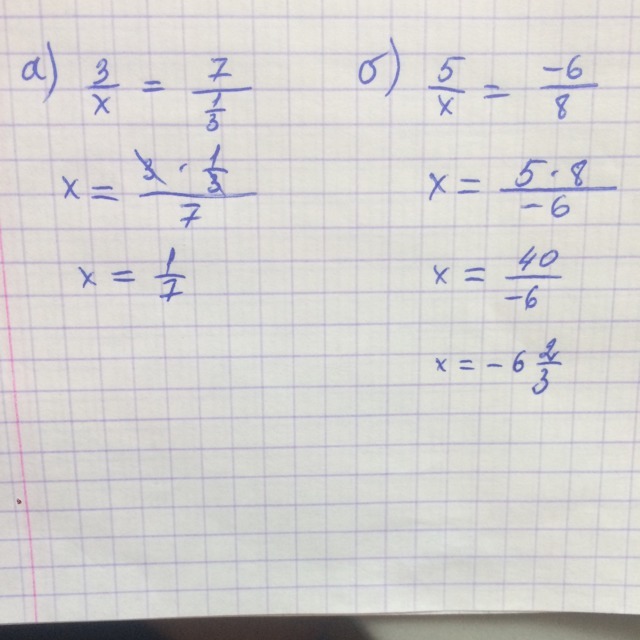 а) 3/x = 7/(1/3)
x = (3 · 1/3)/7
x = 1/7
б) 5/x = -6/8
x = (5 · 8)/-6
x = 40/-6
x = -6 2/3